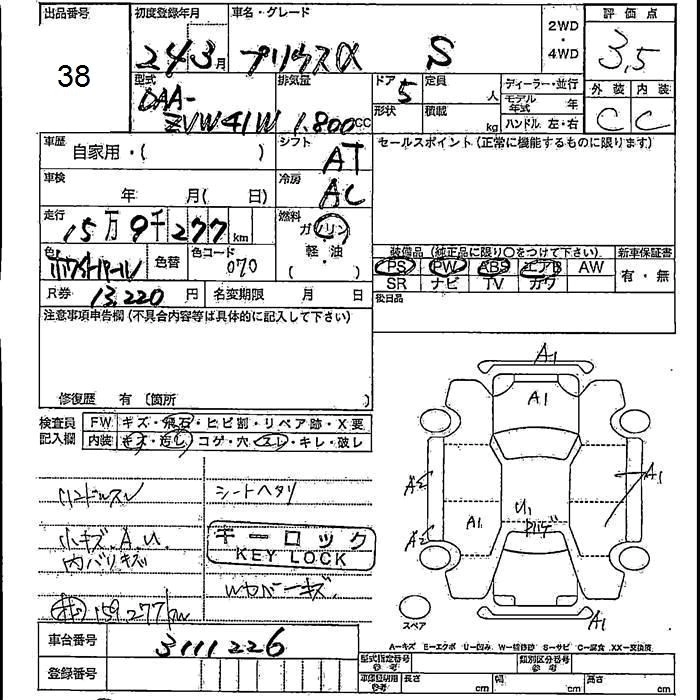 出品番号
38
初度登録年月
24 3月
車名・グレード
プリウスα S
2WD
・
4WD
評価点
3.5
外装 内装
C C
型式
DAA-
ZVW41W
排気量
1,800cc
ドア
5
定員
人
形状
積載
kg
ディーラー・並行
モデル年式 年
ハンドル 左・右
車歴
自家用・( )
シフト
AT
セールスポイント(正常に機能するものに限ります)
車検
年 月( 日)
冷房
AC
走行
15万9千277km
燃料
ガソリン
軽・油
( ・ )
色
ホワイトパール
色替
色コード
070
R券 13,220円
名変期限 月 日
装備品(純正品に限り○をつけて下さい)
新車保証書
PS PW ABS エアB AW
有・無
SR ナビ TV カワ
後日品
注意事項申告欄(不具合内容等は具体的に記入して下さい)
修復歴 有〔箇所 〕
検査員
記入欄
FW キズ・飛石・ヒビ割・リペア跡・X要
内装 キズ・汚レ・コゲ・穴・スレ・キレ・破レ
ハンドルスレ
シートヘタリ
小キズ、A.U.
内バリキズ
キーロック
KEY LOCK
159,277km
A1
A1
A2
A1
A1
U1
A2
A1
スペア
A-キズ E-エクボ U-凹み W-補修跡 S-サビ C-腐食 XX-交換済
車台番号
3111226
登録番号
型式指定番号
参考
類別区分番号
参考
車検証用
参考
長さ cm
幅 cm
高さ cm